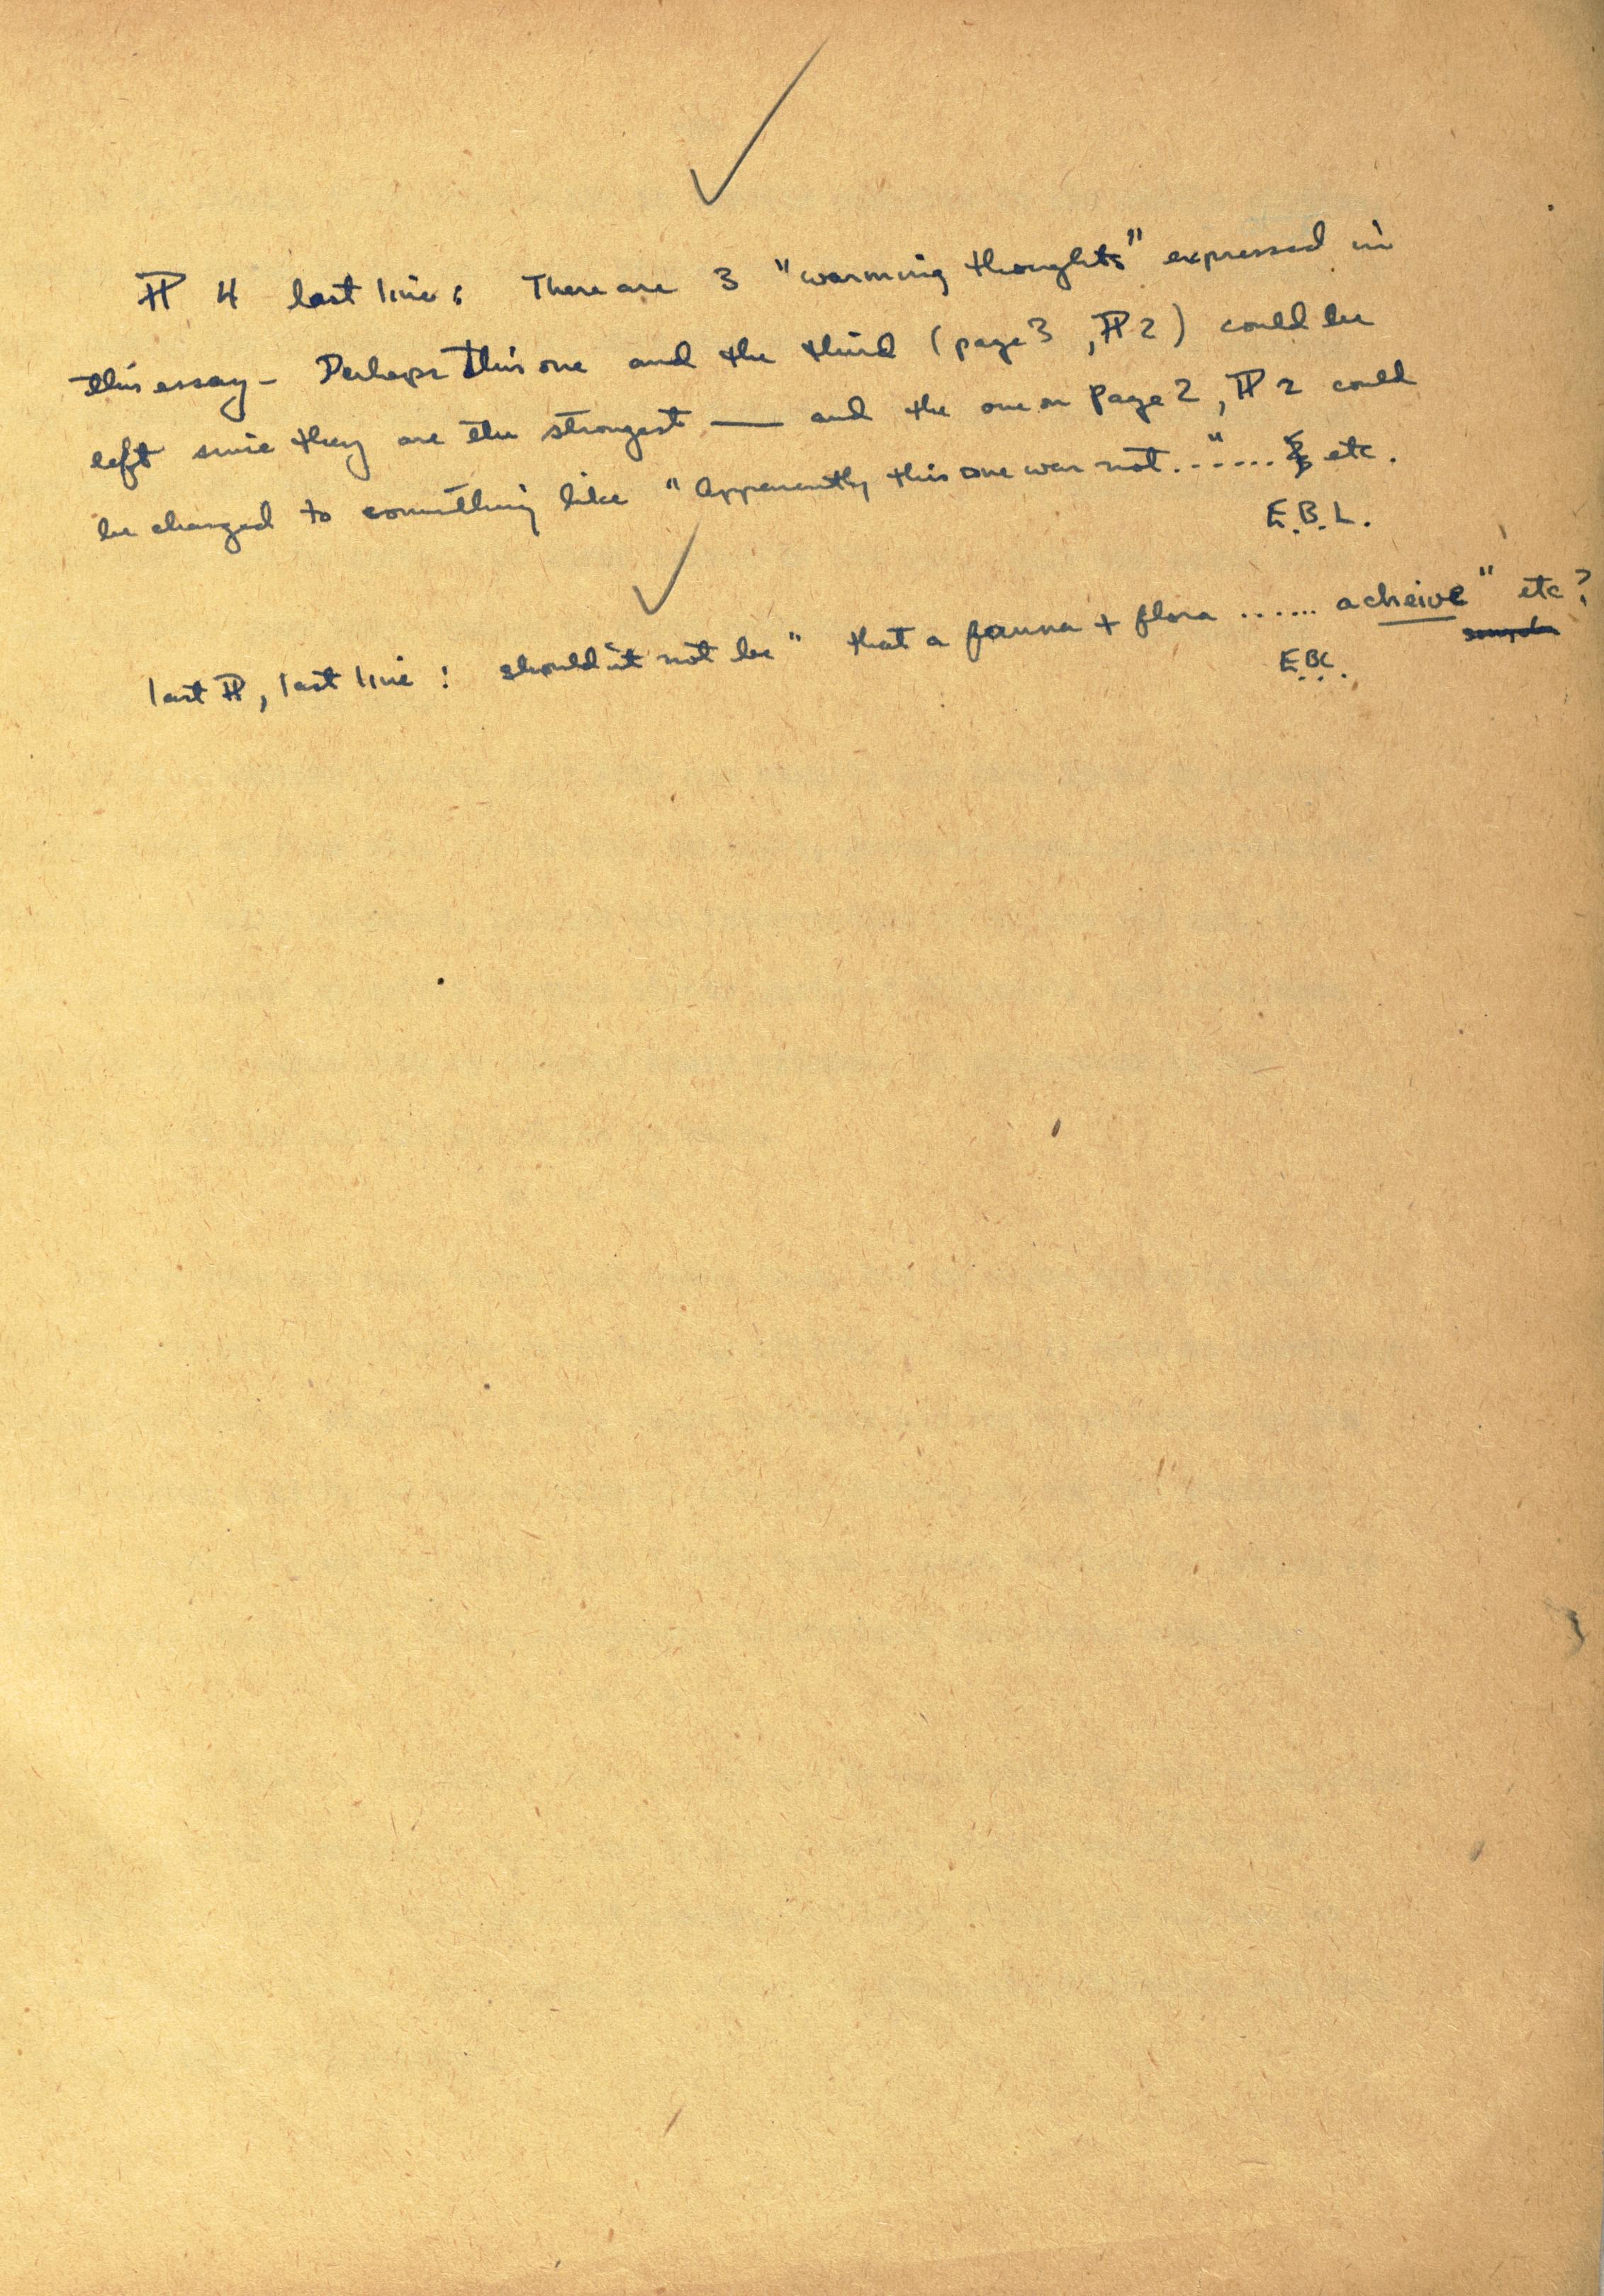 ¶ 4 last line: There are 3 "warming thoughts" expressed in
this essay - Perhaps this one and the third (page 3, ¶ 2) could be
left since they are the strongest — and the one on page 2, ¶ 2 could
be changed to something like "Apparently this one was not..."... etc.
E.B.L.
last ¶, last line: should it not be "that a fauna + flora ...... acheive" etc?
E.B.L.